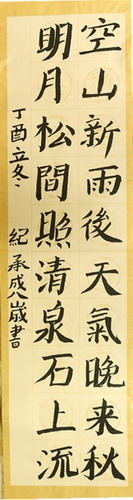 空山新雨後天氣晚来秋
明月松間照清泉石上流
丁酉立冬 紀承成八歲書